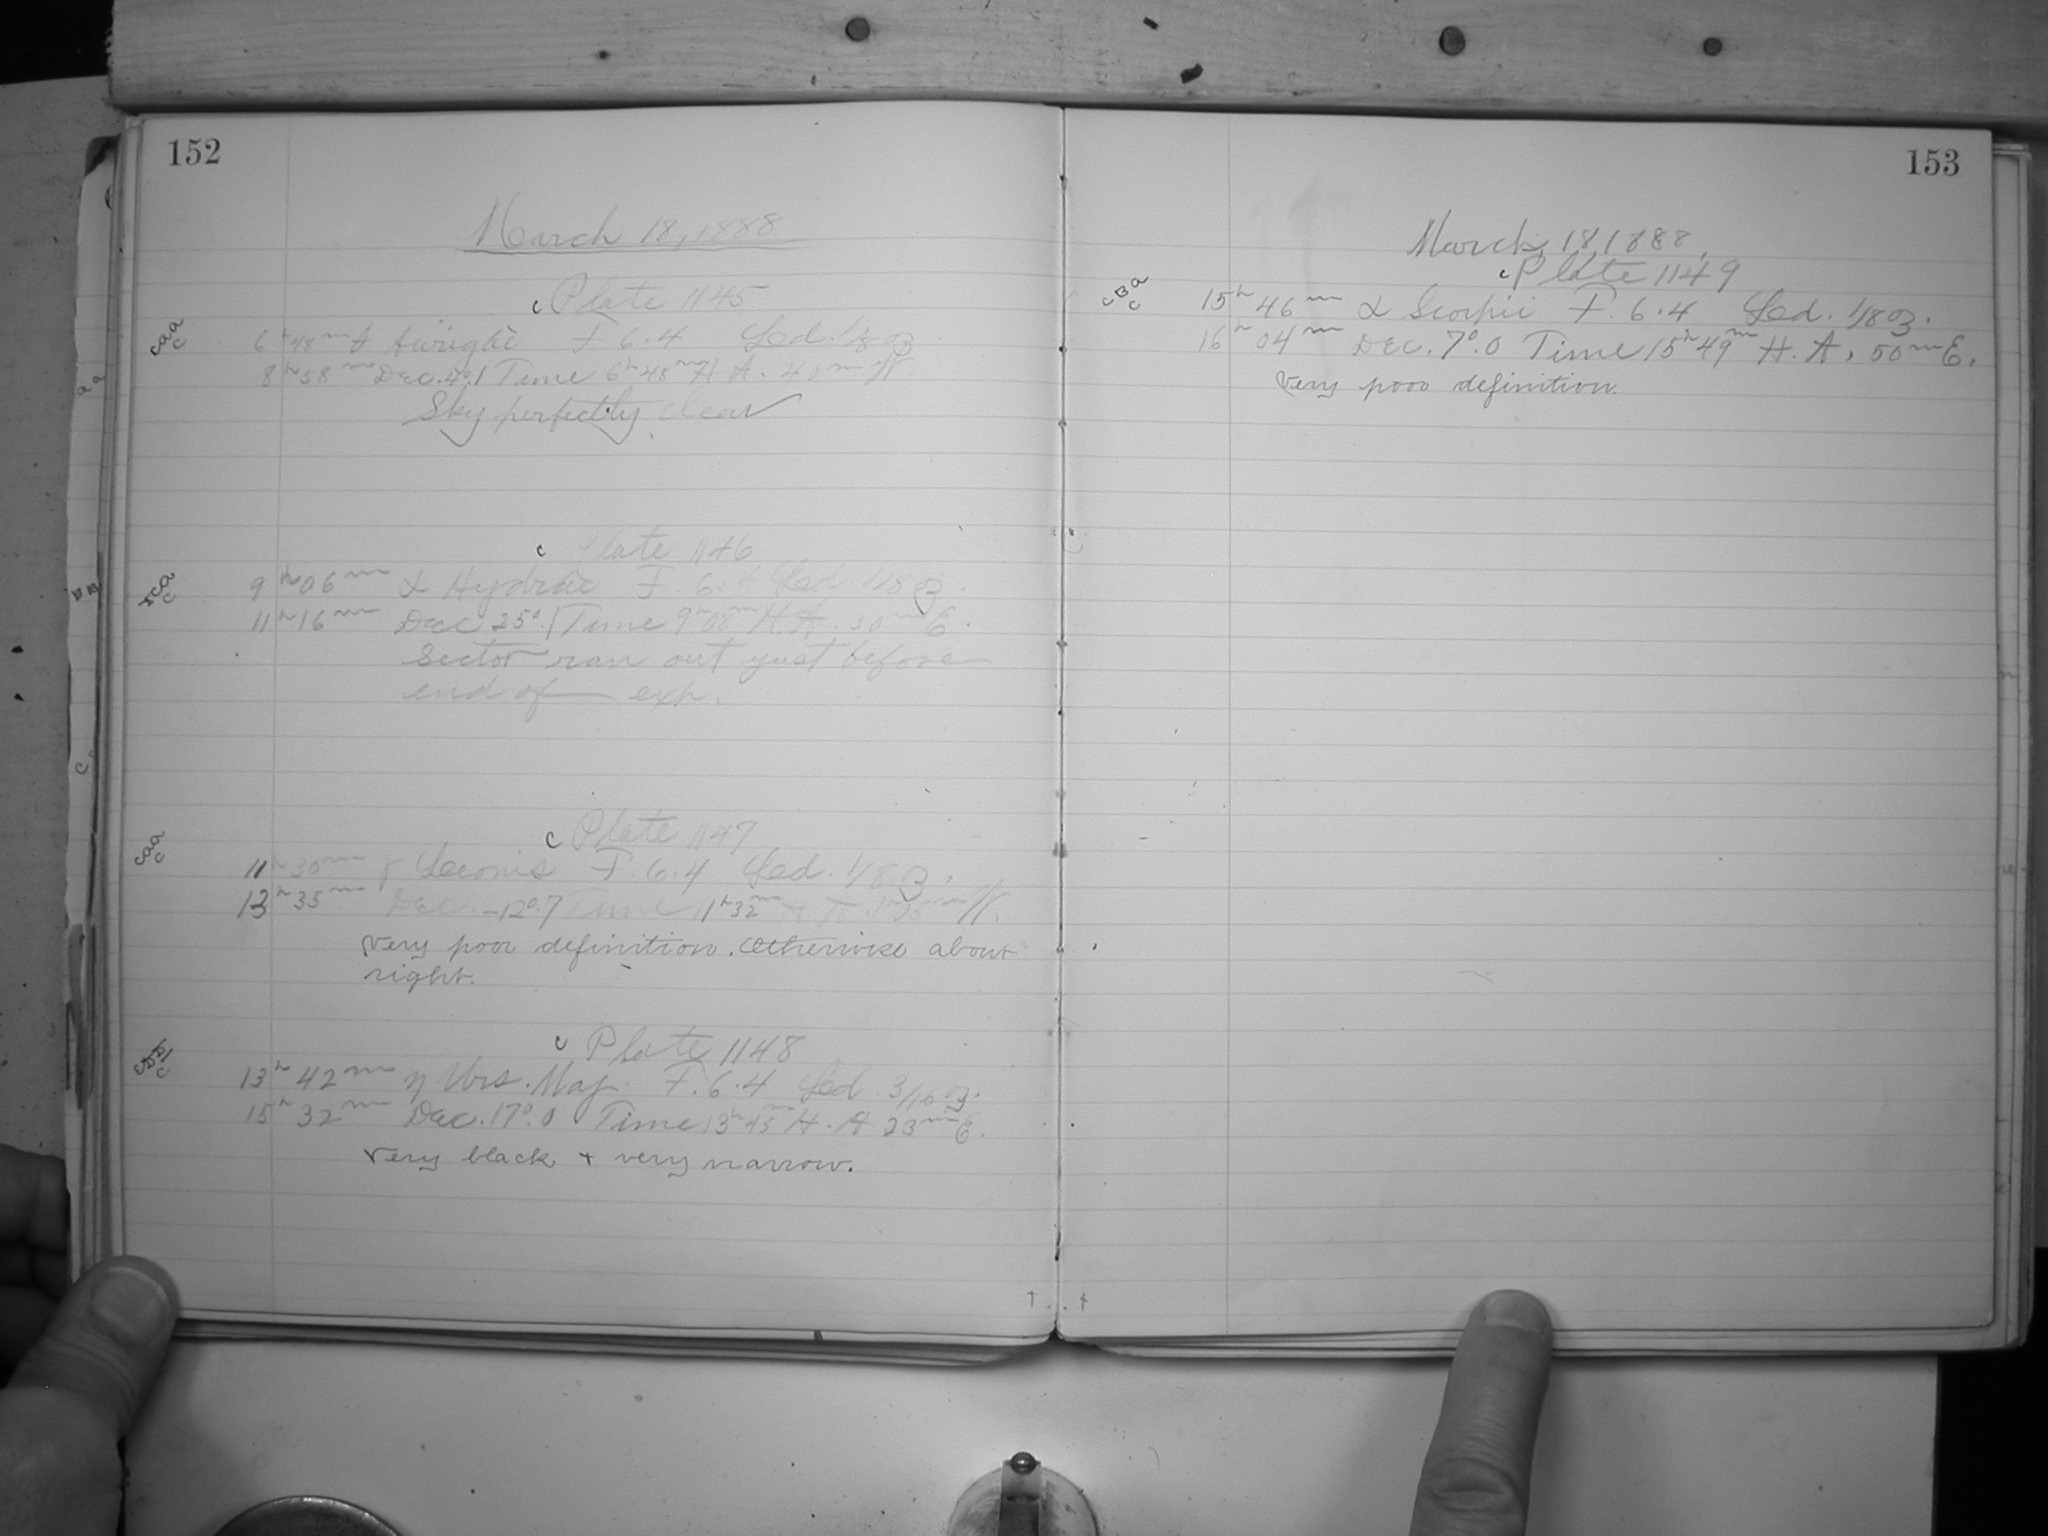 152
March 18, 1888
c Plate 1145
caac
6h 48m Aurigae F 6.4 Led. 1/8 3.
8h 58m Dec. 4°.1 Time 6h 48m H A. 40m W
Sky perfectly clear
c Plate 1146
9h 06m α Hydrae F. 6.4 Led 1/8 3.
11h 16m Dec 25°.1 Time 9h 08m H. A. 50m E.
Sector ran out just before
end of exp.
c Plate 1147
caac
11h 30m γ Leonis F. 6.4 Led. 1/8 3,
13h 35m Dec. -12°.7 Time 11h 32m H A W.
Very poor definition. Otherwise about
right.
c Plate 1148
13h 42m η Urs. Maj. F. 6.4 Led 3/16 3.
15h 32m Dec. 17°.0 Time 13h 43m H. A 23m E.
Very black + very narrow.
153
March, 18, 1888,
c Plate 1149
cBac
15h 46m α Scorpii F. 6.4 Led. 1/8 3.
16h 04m Dec. 7°.0 Time 15h 49m H. A, 50m E.
Very poor definition.